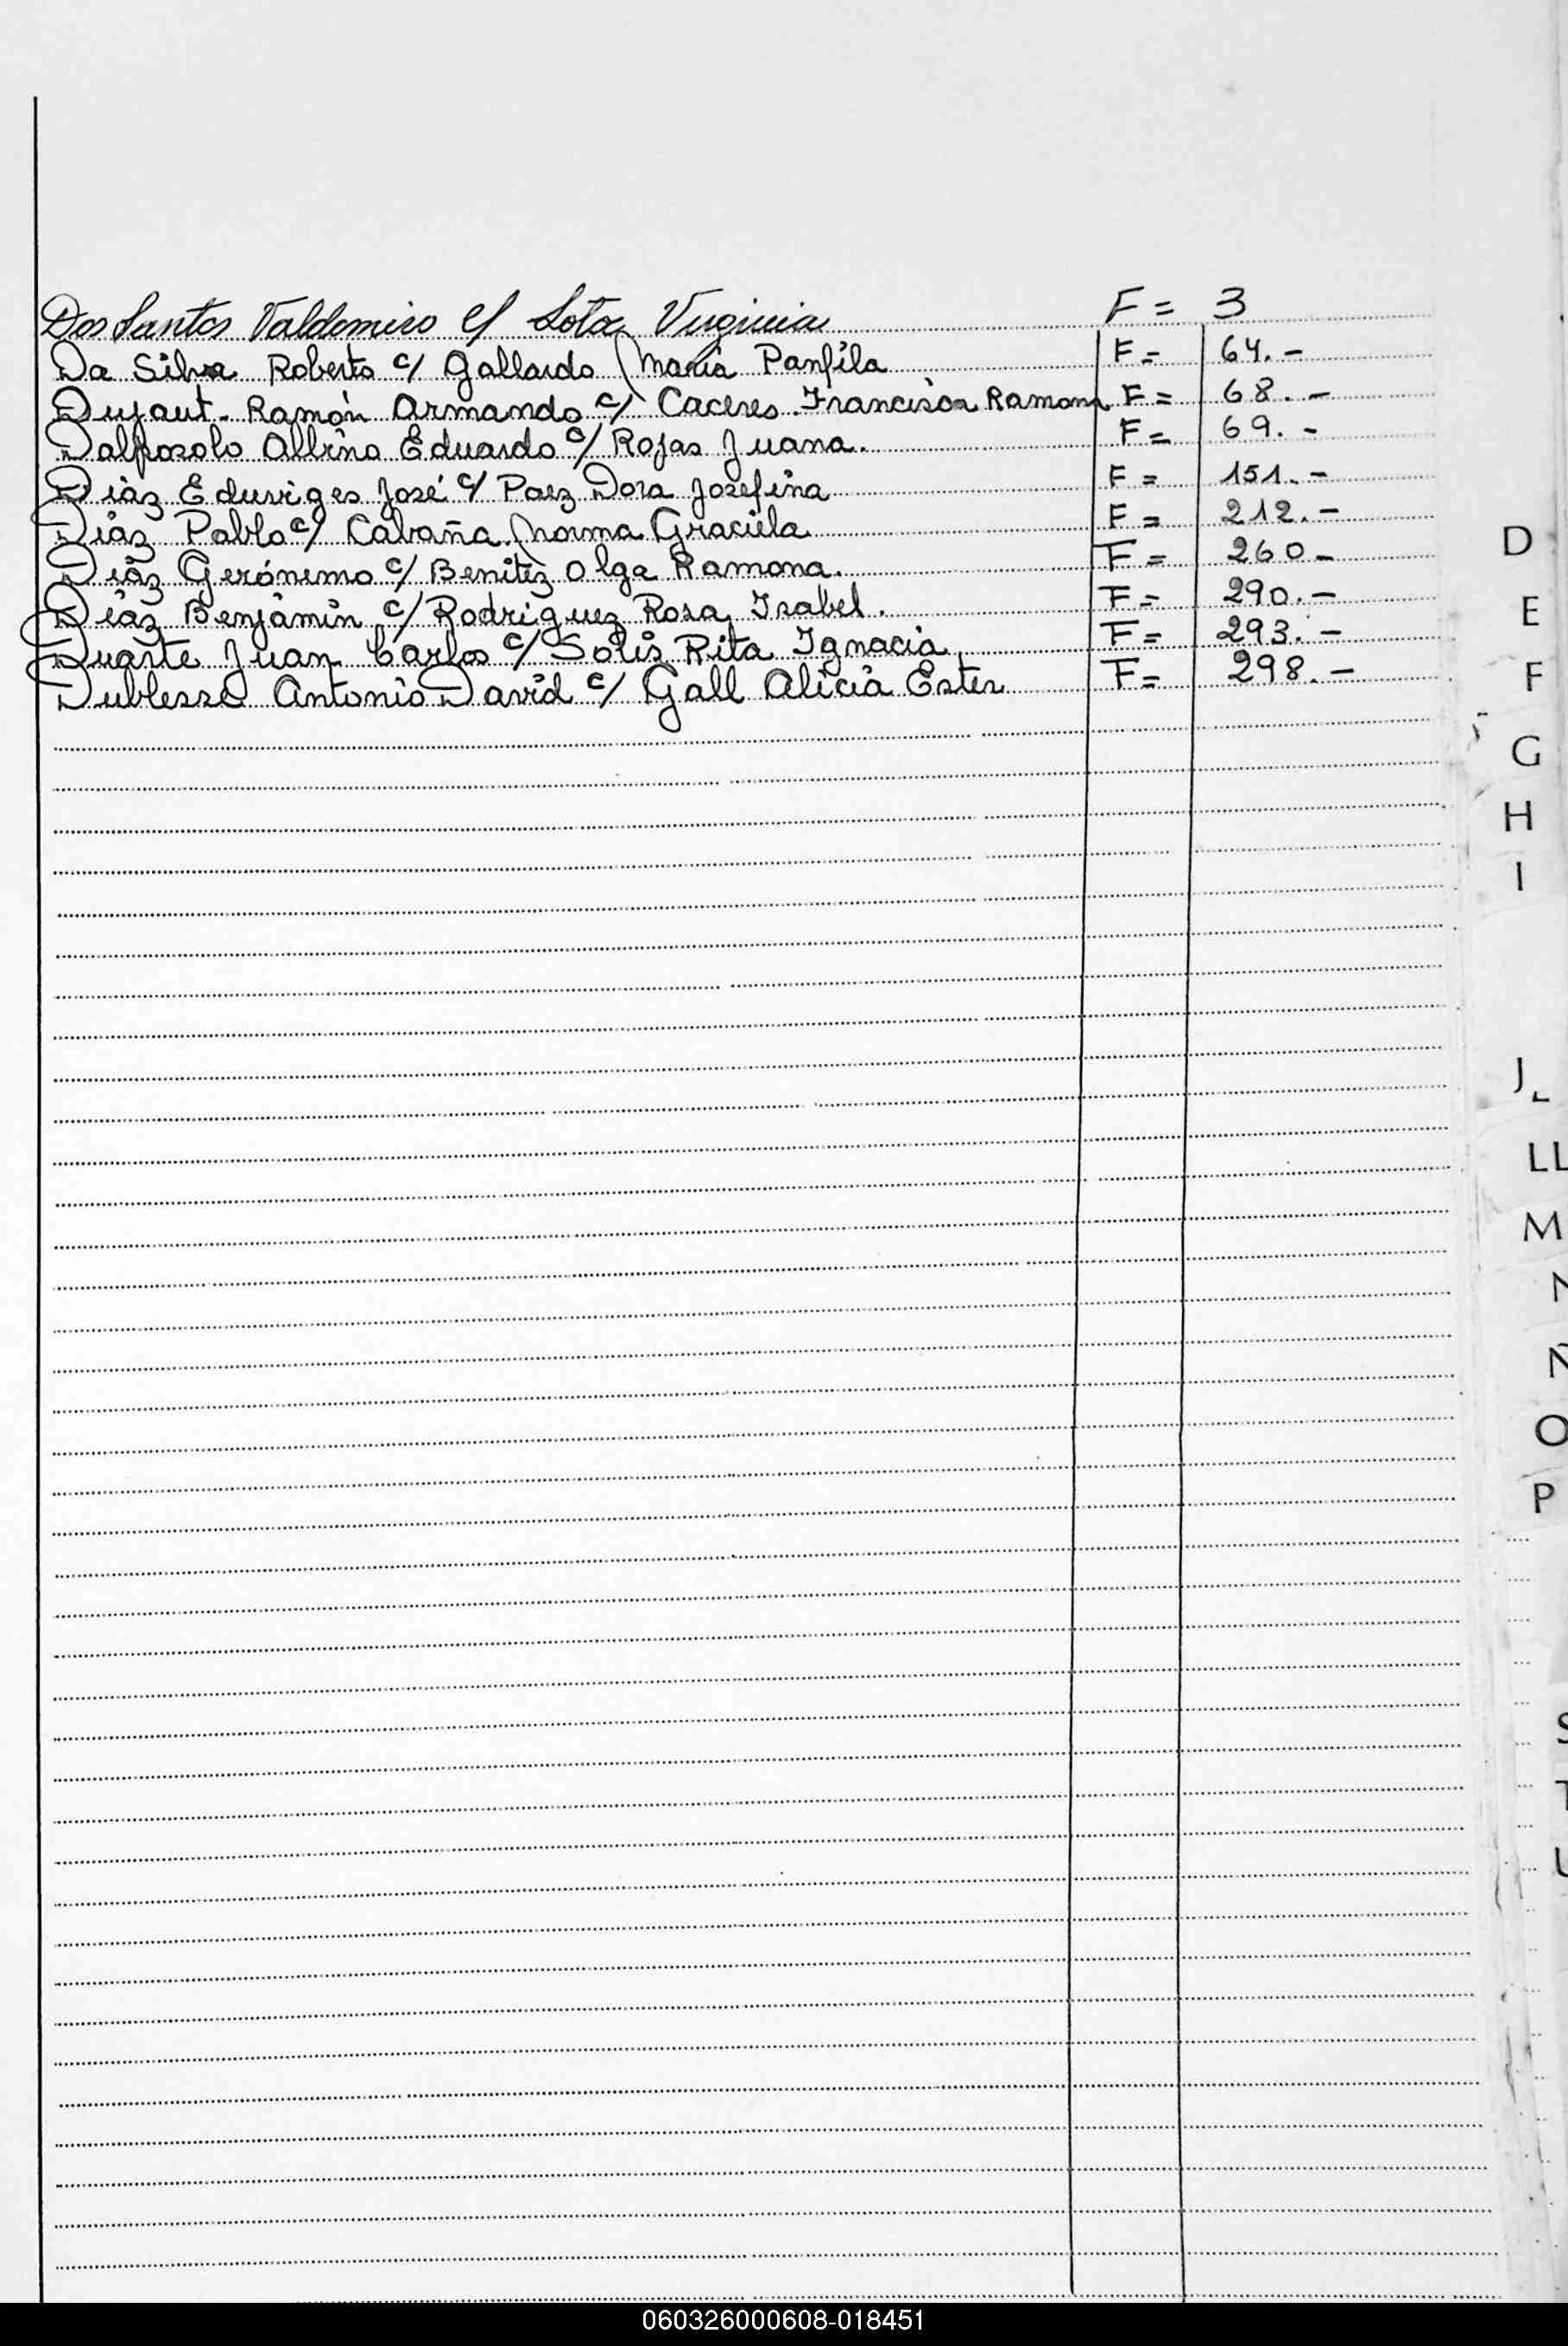 Dos Santos Valdomiro c/ Sota Virginia F= 3
Da Silva Roberto c/ Gallardo Maria Panfila F= 64.-
Dujaut. Ramón Armando c/ Caceres Francisca Ramona F= 68.-
Dalposolo Albino Eduardo c/ Rojas Juana. F= 69.-
Diáz Eduviges José c/ Paez Dora Josefina F= 151.-
Diáz Pablo c/ Cabaña Norma Graciela F= 212.-
Diáz Gerónimo c/ Benitez Olga Ramona. F= 260-
Diáz Benjámin c/ Rodriguez Rosa Isabel. F= 290.-
Duarte Juan Carlos c/ Solis Rita Ignacia F= 293.-
Dublesso Antonio David c/ Gall Alicia Ester F= 298.-
D
E
F
G
H
I
J
L
LL
M
N
Ñ
O
P
S
T
U
060326000608-018451